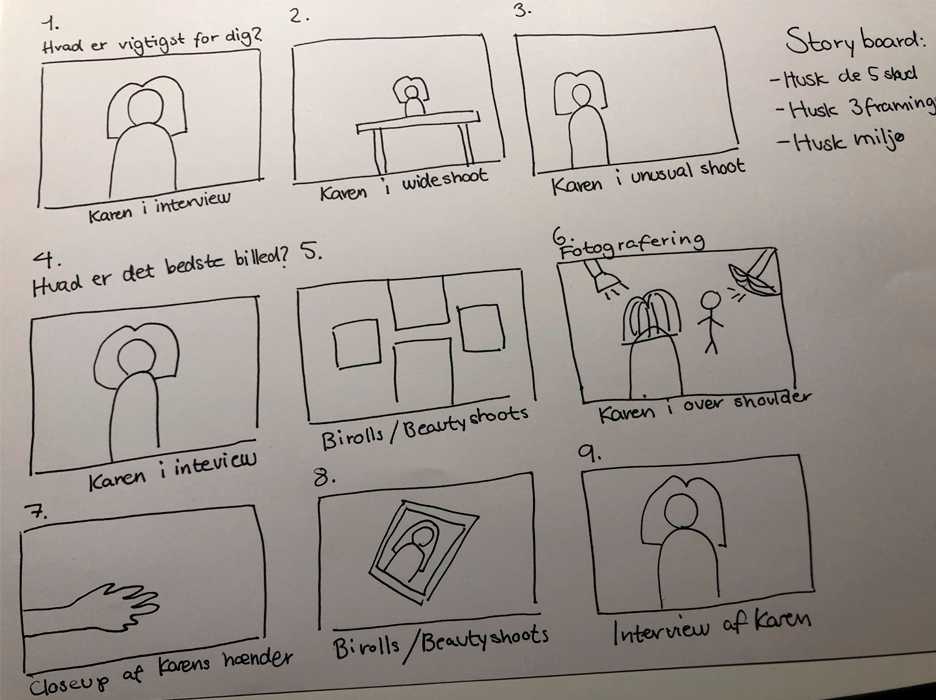 1.
Hvad er vigtigst for dig?
Karen i interview
2.
Karen i wideshoot
3.
Karen i unusual shoot
Storyboard:
- Husk de 5 skud
- Husk 3 framing
- Husk miljø
4.
Hvad er det bedste billed?
Karen i inteview
5.
Birolls / Beautyshoots
6.
Fotografering
Karen i over shoulder
7.
Closeup af Karens hænder
8.
Birolls / Beautyshoots
9.
Interview af Karen